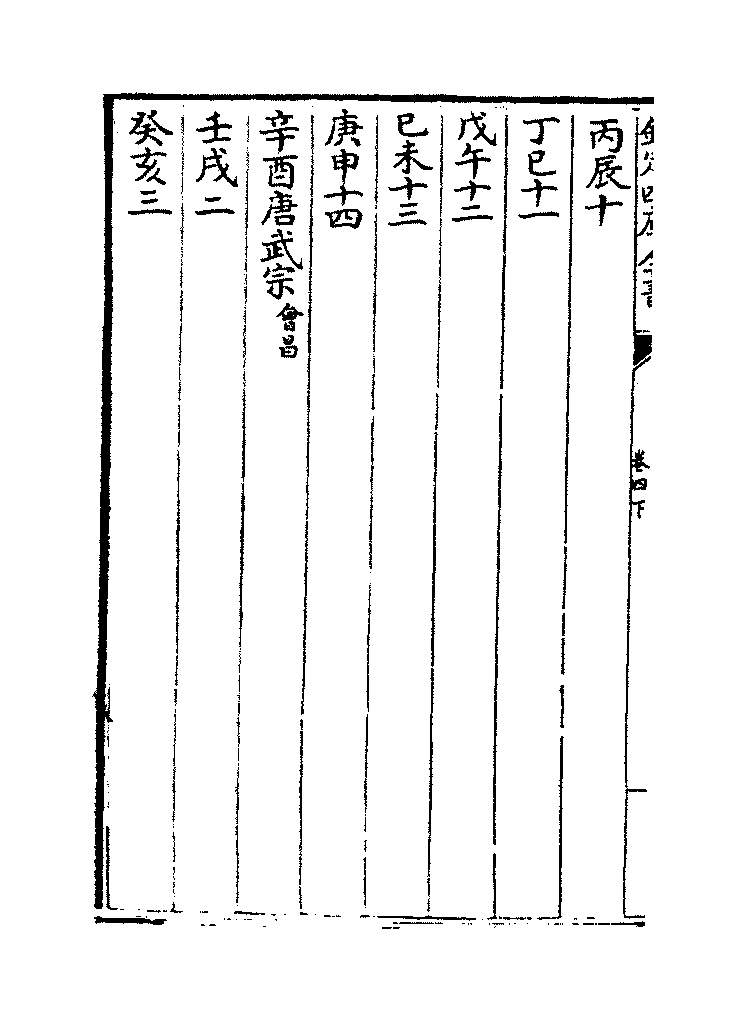 欽定四庫全書
卷四下
丙辰十
丁巳十一
戊午十二
己未十三
庚申十四
辛酉唐武宗會昌
壬戌二
癸亥三